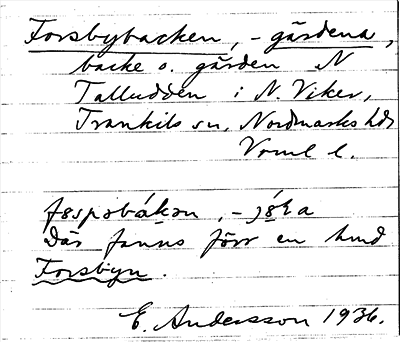 Forsbybacken, -gärdena,
backe o. gärden N
Talludden i N. Viker,
Trankils sn, Nordmarks hd,
Värml l.
-jäka
Där fanns förr en hmd
Forsbyn.
E. Andersson 1936.